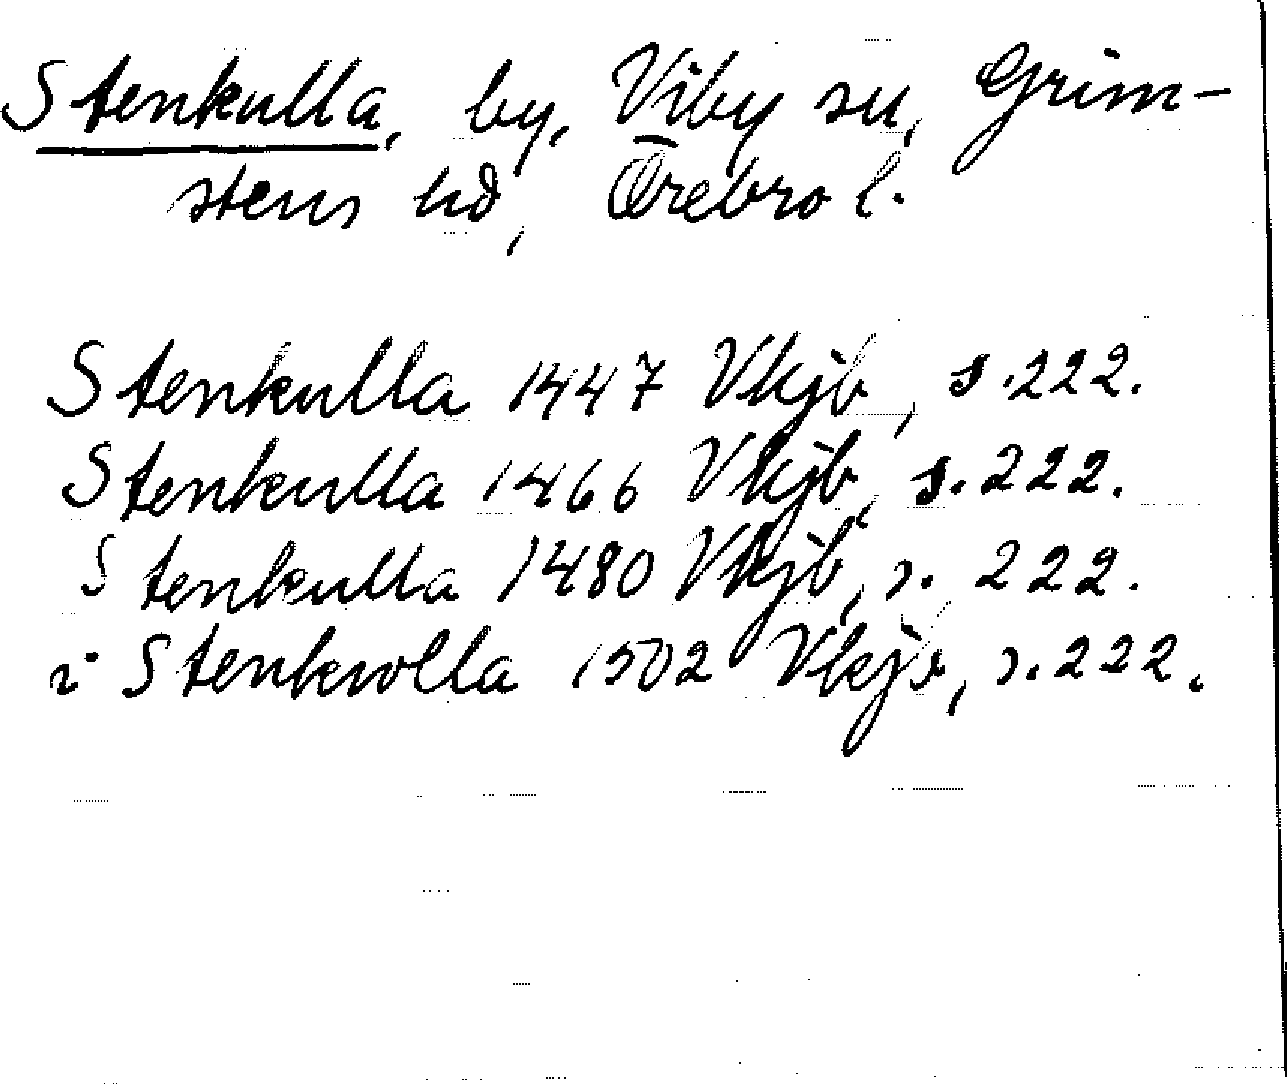 Stenkulla, by, Viby sn, Grim-
stens hd, Örebro l.
Stenkulla 1447 Vkjb, s. 222.
Stenkulla 1466 Vkjb, s. 222.
Stenkulla 1480 Vkjb, s. 222.
i Stenkwlla 1502 Vkjb, s. 222.